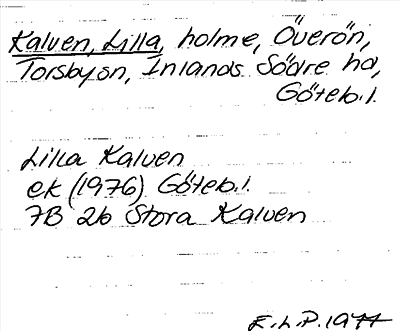 Kalven, Lilla, holme, Överön,
Torsbysn, Inlands Södre hd,
Göteb.l.
Lilla Kalven
ek (1976) Göteb.l.
7B 2b Stora Kalven
E.L.P. 1977